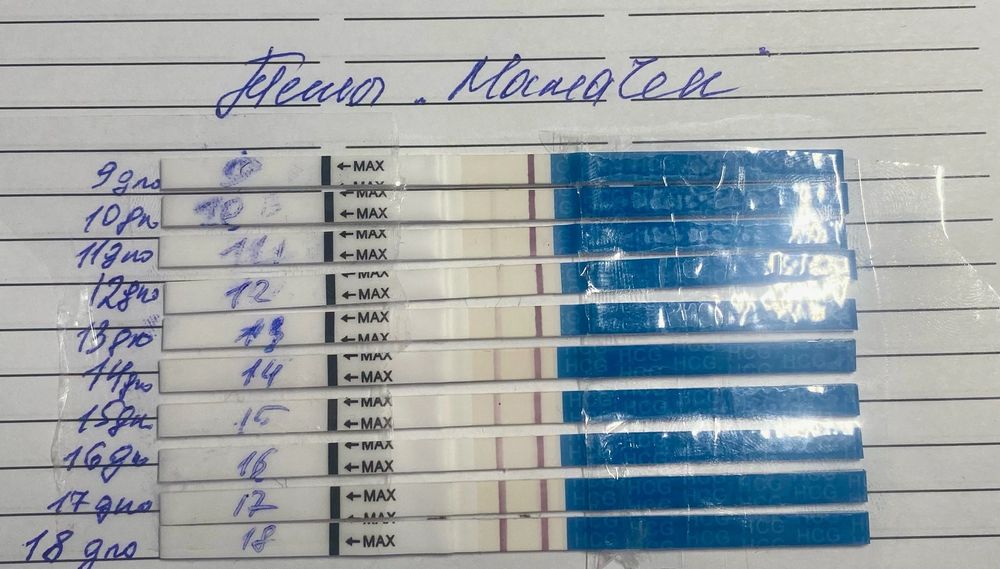 Тесты. Мамачек
9 дпо 9 ←MAX
10 дпо 10 ←MAX
11 дпо 11 ←MAX
12 дпо 12 ←MAX
13 дпо 13 ←MAX
14 дпо 14 ←MAX HCG HCG HCG HCG
15 дпо 15 ←MAX
16 дпо 16 ←MAX
17 дпо 17 ←MAX HCG
18 дпо 18 ←MAX HCG HCG